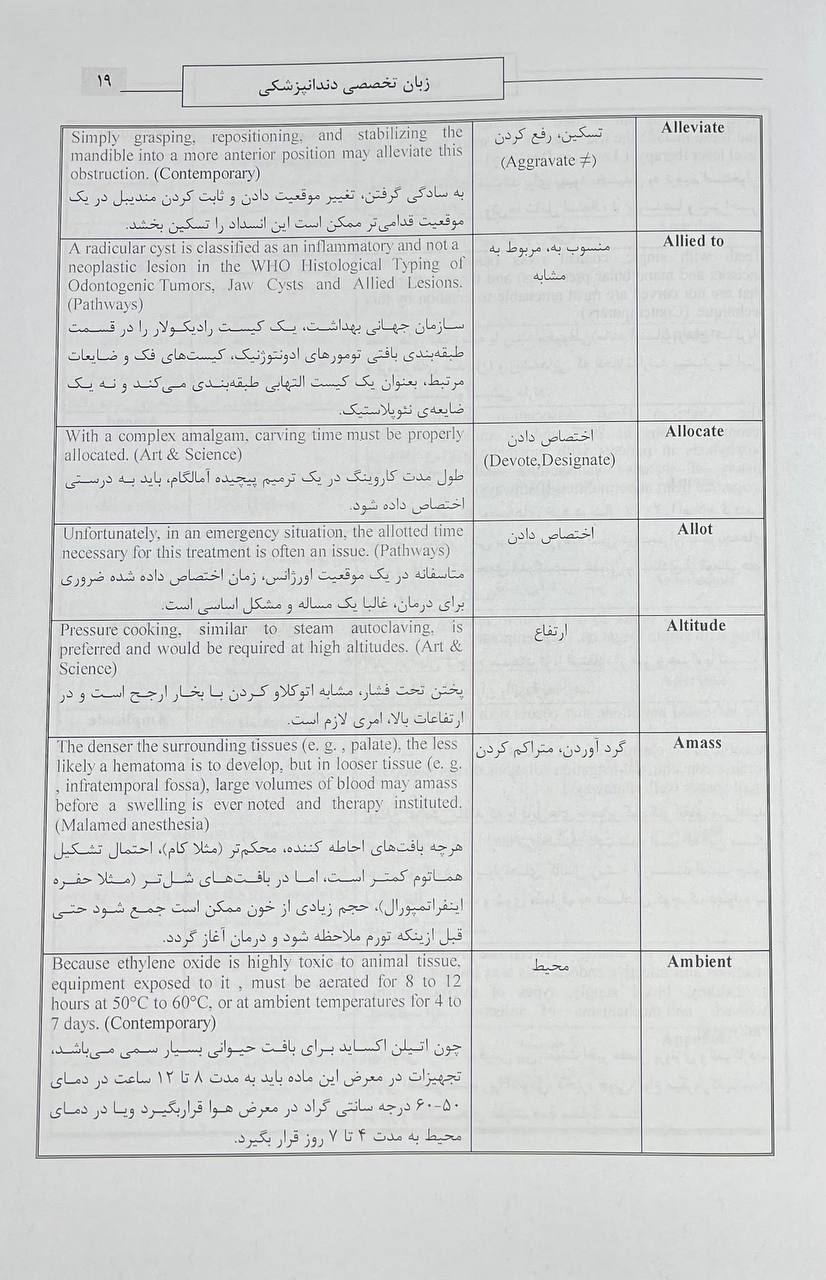 ۱۹
زبان تخصصی دندانپزشکی
Alleviate
تسکین، رفع کردن
(Aggravate ≠)
Simply grasping, repositioning, and stabilizing the
mandible into a more anterior position may alleviate this
obstruction. (Contemporary)
به سادگی گرفتن، تغییر موقعیت دادن و ثابت کردن مندیبل در یک
موقعیت قدامی‌تر ممکن است این انسداد را تسکین بخشد.
Allied to
منسوب به، مربوط به
مشابه
A radicular cyst is classified as an inflammatory and not a
neoplastic lesion in the WHO Histological Typing of
Odontogenic Tumors, Jaw Cysts and Allied Lesions.
(Pathways)
سازمان جهانی بهداشت، یک کیست رادیکولار را در قسمت
طبقه‌بندی بافتی تومورهای ادونتوژنیک، کیست‌های فک و ضایعات
مرتبط، بعنوان یک کیست التهابی طبقه‌بندی می‌کند و نه یک
ضایعه‌ی نئوپلاستیک.
Allocate
اختصاص دادن
(Devote,Designate)
With a complex amalgam, carving time must be properly
allocated. (Art & Science)
طول مدت کاروینگ در یک ترمیم پیچیده آمالگام، باید به درستی
اختصاص داده شود.
Allot
اختصاص دادن
Unfortunately, in an emergency situation, the allotted time
necessary for this treatment is often an issue. (Pathways)
متاسفانه در یک موقعیت اورژانس، زمان اختصاص داده شده ضروری
برای درمان، غالبا یک مساله و مشکل اساسی است.
Altitude
ارتفاع
Pressure cooking, similar to steam autoclaving, is
preferred and would be required at high altitudes. (Art &
Science)
پختن تحت فشار، مشابه اتوکلاو کردن با بخار ارجح است و در
ارتفاعات بالا، امری لازم است.
Amass
گرد آوردن، متراکم کردن
The denser the surrounding tissues (e. g. , palate), the less
likely a hematoma is to develop, but in looser tissue (e. g.
, infratemporal fossa), large volumes of blood may amass
before a swelling is ever noted and therapy instituted.
(Malamed anesthesia)
هرچه بافت‌های احاطه کننده، محکم‌تر (مثلا کام)، احتمال تشکیل
هماتوم کمتر است، اما در بافت‌های شل‌تر (مثلا حفره
اینفراتمپورال)، حجم زیادی از خون ممکن است جمع شود حتی
قبل ازینکه تورم ملاحظه شود و درمان آغاز گردد.
Ambient
محیط
Because ethylene oxide is highly toxic to animal tissue,
equipment exposed to it , must be aerated for 8 to 12
hours at 50°C to 60°C, or at ambient temperatures for 4 to
7 days. (Contemporary)
چون اتیلن اکساید برای بافت حیوانی بسیار سمی می‌باشد،
تجهیزات در معرض این ماده باید به مدت ۸ تا ۱۲ ساعت در دمای
۵۰-۶۰ درجه سانتی گراد در معرض هوا قراربگیرد ویا در دمای
محیط به مدت ۴ تا ۷ روز قرار بگیرد.